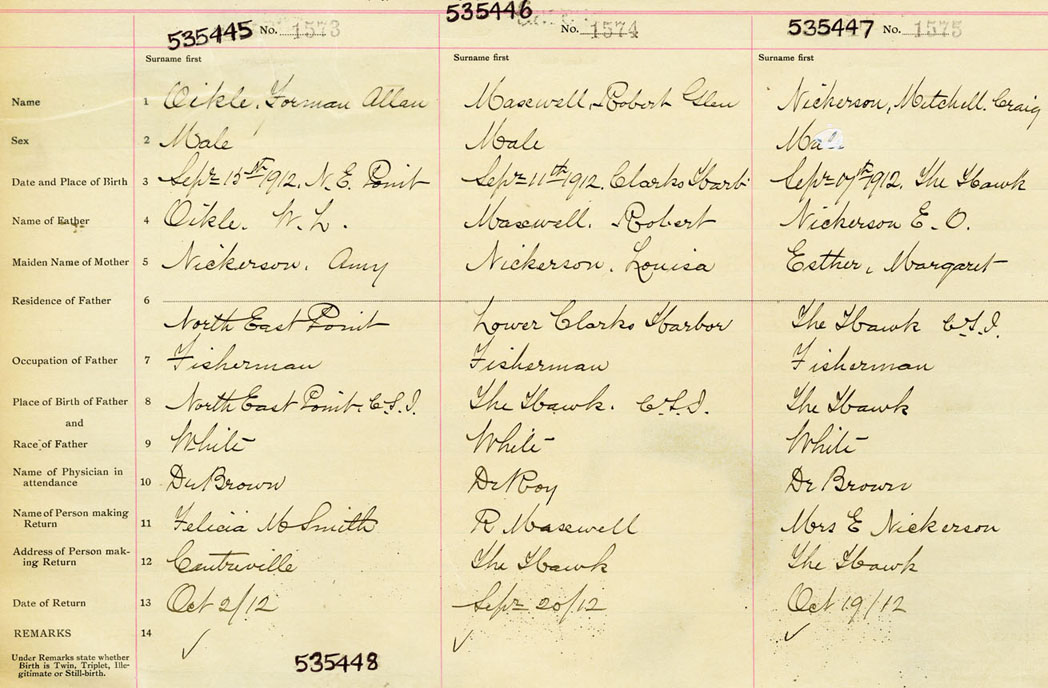 535445 No. 1573 535446 No. 1574 535447 No. 1575
Surname first Surname first Surname first
Name 1 Oikle, Forman Allan Maxwell, Robert Glen Nickerson, Mitchell Craig
Sex 2 Male Male Mal
Date and Place of Birth 3 Sept 15th 1912. N. E. Point Sept 11th 1912. Clarks Harb Sept 1912. The Hawk
Name of Father 4 Oikle. W. L. Maxwell. Robert Nickerson E. O.
Maiden Name of Mother 5 Nickerson. Amy Nickerson. Louisa Esther, Margaret
Residence of Father 6
North East Point Lower Clarks Harbor The Hawk C.S.I.
Occupation of Father 7 Fisherman Fisherman Fisherman
Place of Birth of Father 8 North East Point. C.S.I. The Hawk. C.S.I. The Hawk
and
Race of Father 9 White White White
Name of Physician in attendance 10 Dr Brown Dr Roy Dr Brown
Name of Person making Return 11 Felicia M Smith R Maxwell Mrs E Nickerson
Address of Person mak-ing Return 12 Centreville The Hawk The Hawk
Date of Return 13 Oct 2/12 Sept 20/12 Oct 19/12
REMARKS 14 ✓ ✓ ✓
Under Remarks state whether
Birth is Twin, Triplet, Ille-
gitimate or Still-birth.
535448